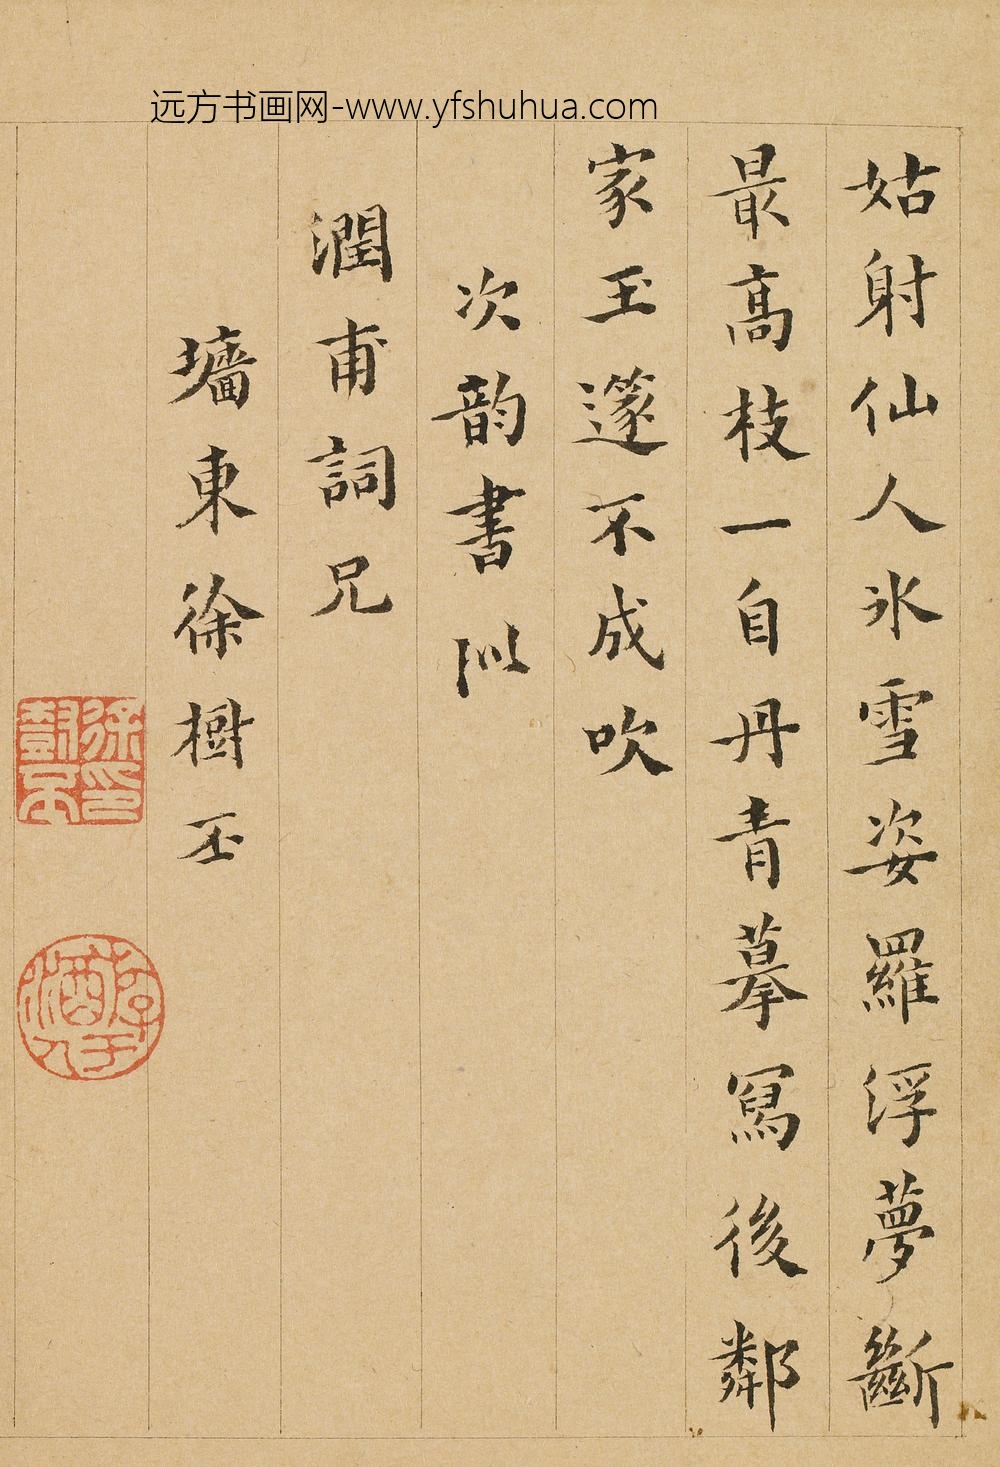 远方书画网-www.yfshuhua.com
姑射仙人氷雪姿羅浮夢斷
最高枝一自丹青摹寫後鄰
家玉篴不成吹
次韵書似
潤甫詞兄
墻東徐樹丕
徐樹丕印